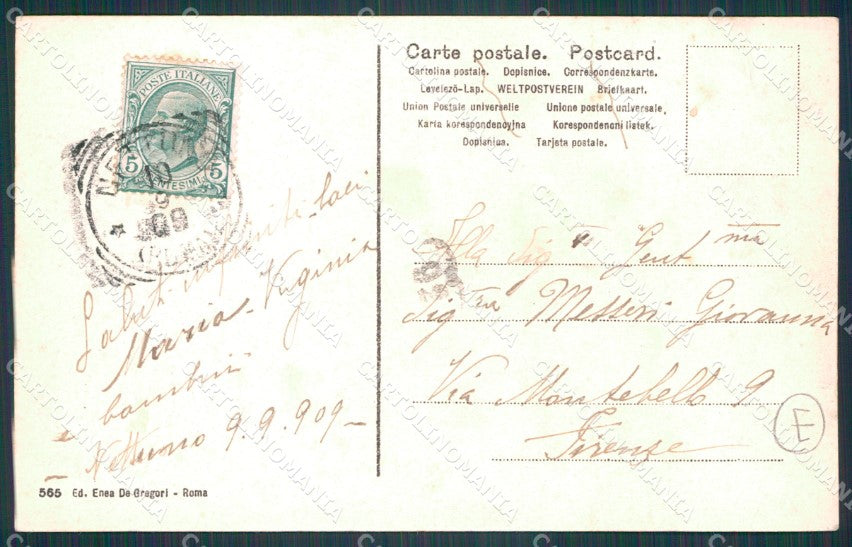 POSTE ITALIANE
5 CENTESIMI 5
10
9
09
Saluti infiniti baci
Maria - Virginia
bambini
e
- Nettuno 9.9.909 -
565 Ed. Enea De Gregori - Roma
Carte postale. Postcard.
Cartolina postale. Dopisnice. Correspondenzkarte.
Levelező-Lap. WELTPOSTVEREIN Briefkaart.
Union Postale universelle Unione postale universale.
Karta korespondencyjna Korespondencni listek.
Dopisnica. Tarjeta postale.
Alla Gent ma
Sig ra Messeri Giovanna
Via Montebello 9
Firenze
E
CARTOLINOMANIA